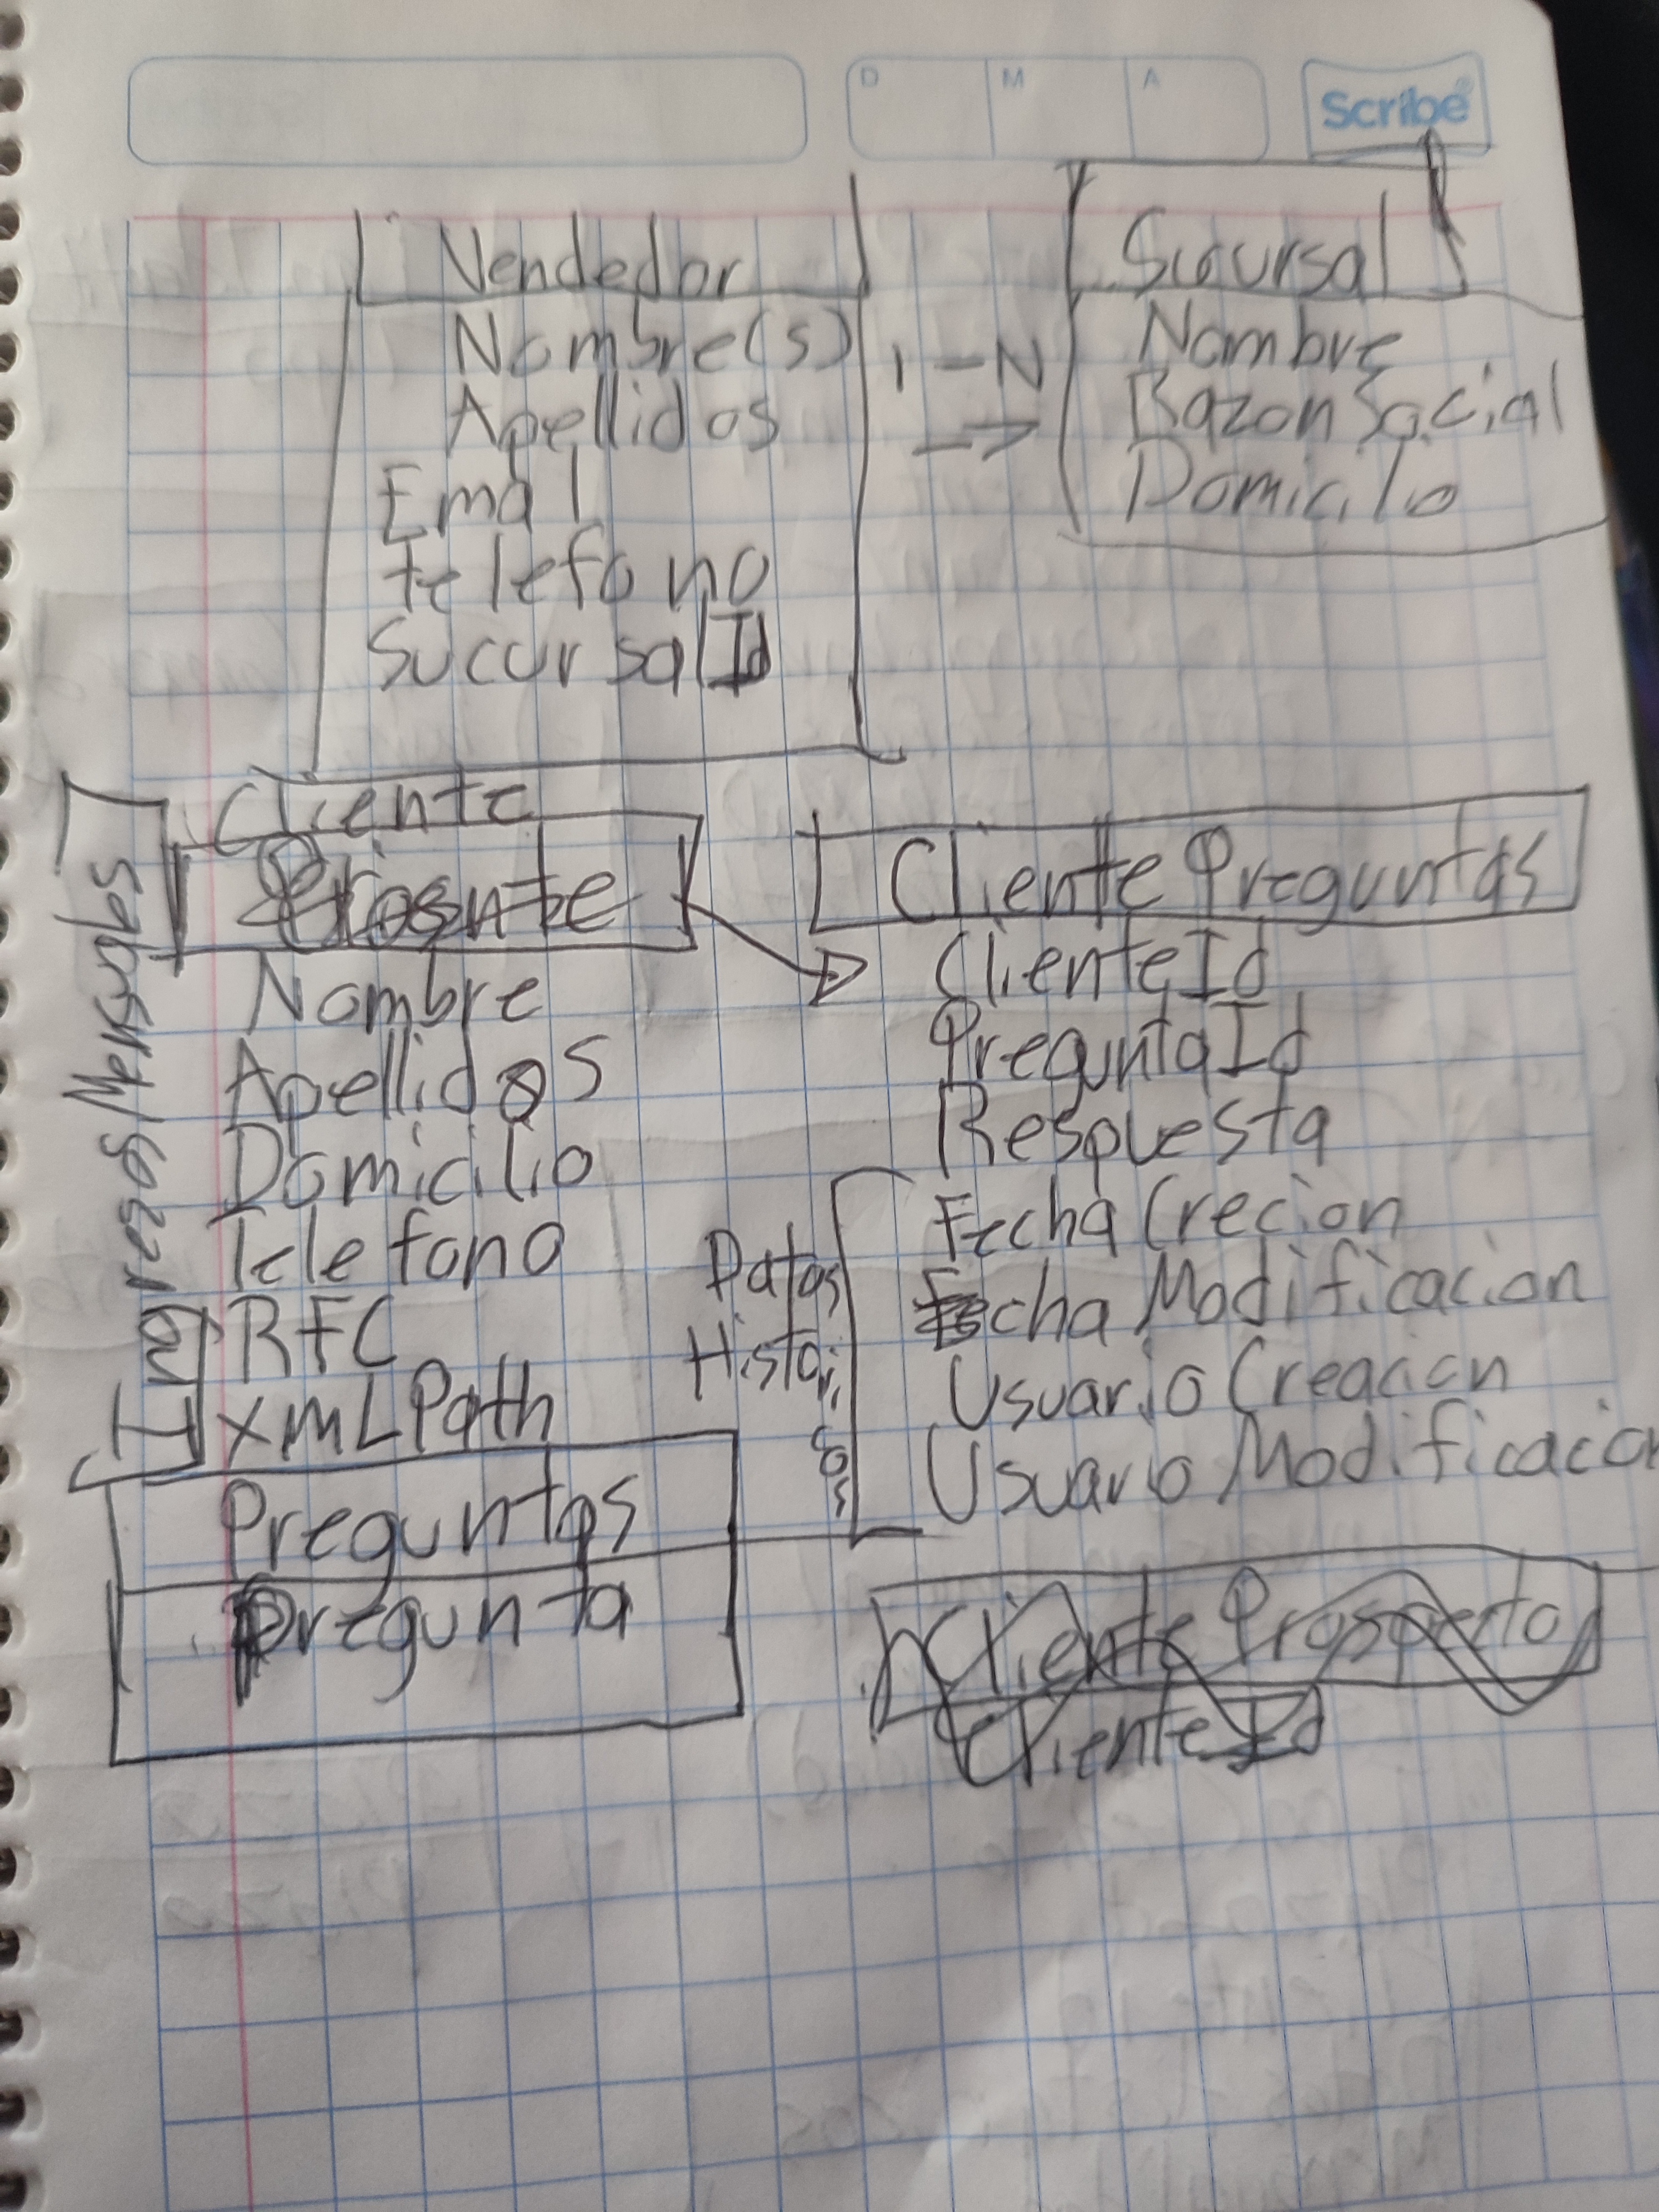 D M A
Scribe
Vendedor
Nombre(s)
Apellidos
Email
telefono
SucursalId
1-N
->
Sucursal
Nombre
Razon Social
Domicilio
Cliente
Nombre
Apellidos
Domicilio
Telefono
RFC
XMLPath
Ingresos Mensuales
Cliente Preguntas
ClienteId
PreguntaId
Respuesta
Fecha Crecion
Fecha Modificacion
Usuario Creacion
Usuario Modificacion
Datos
Historicos
Preguntas
Pregunta
Cliente Prospecto
ClienteId